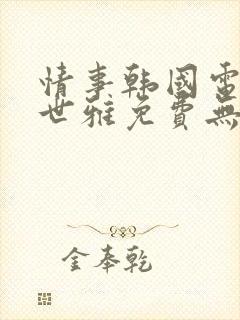 情事韩國電
世雅免費無
金奉乾